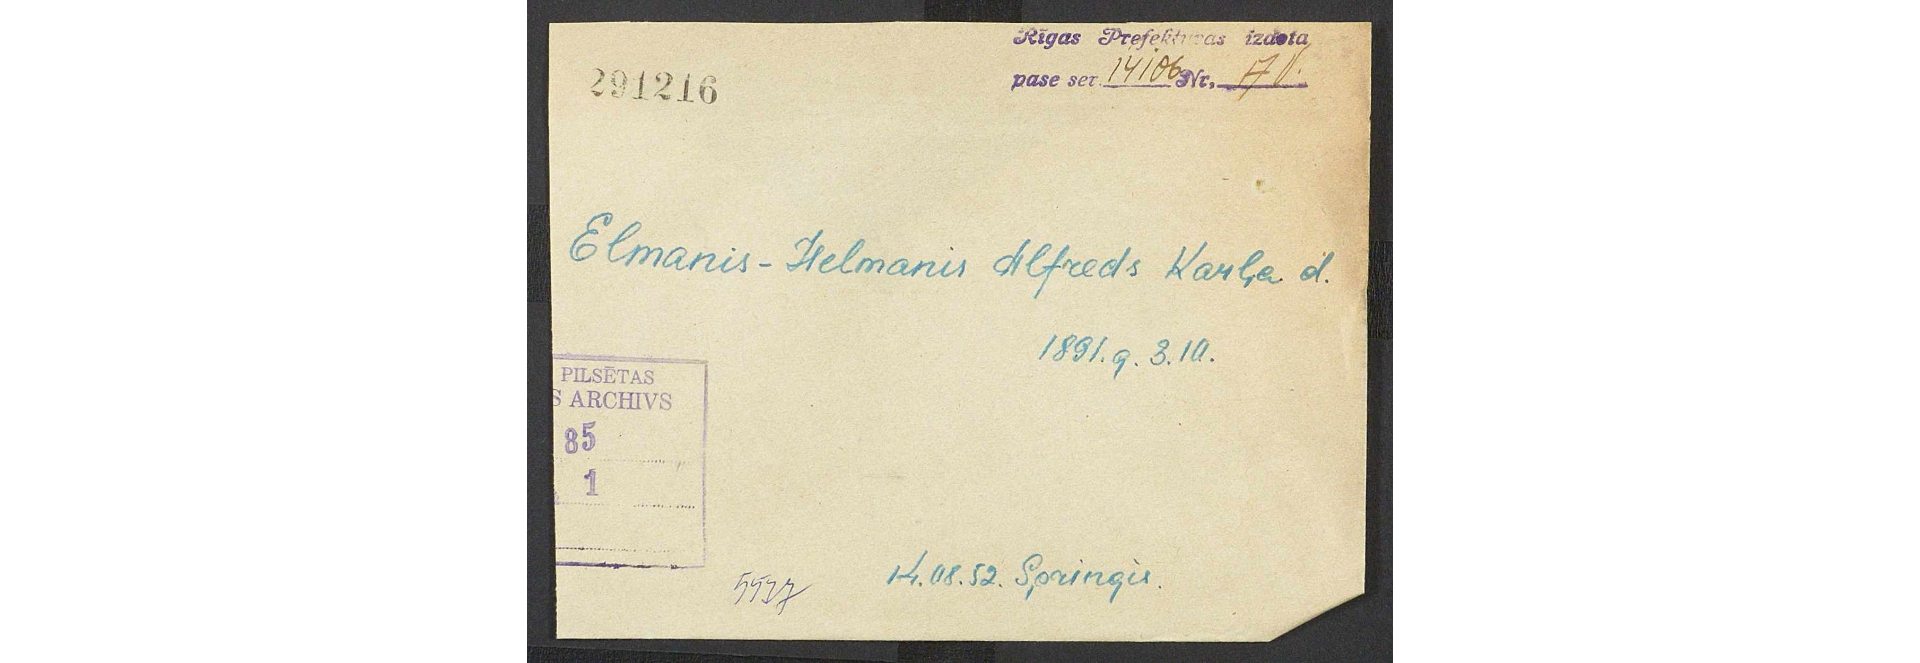 Rīgas Prefektūras izdota
291216
pase ser. 14106 Nr.
Elmanis-Helmanis Alfreds Karļa d.
1891.g. 3.10.
PILSĒTAS
S ARCHIVS
85
1
14.08.52. Springis.